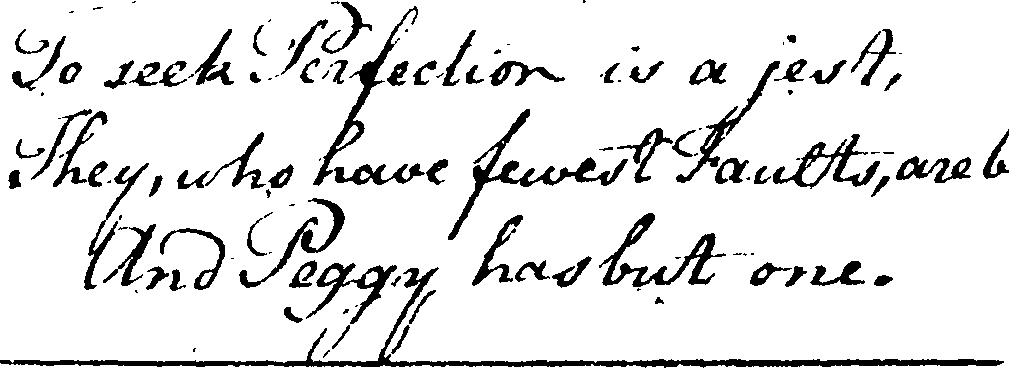 To seek Perfection is a jest,
They, who have fewest Faults, are b
And Peggy has but one.